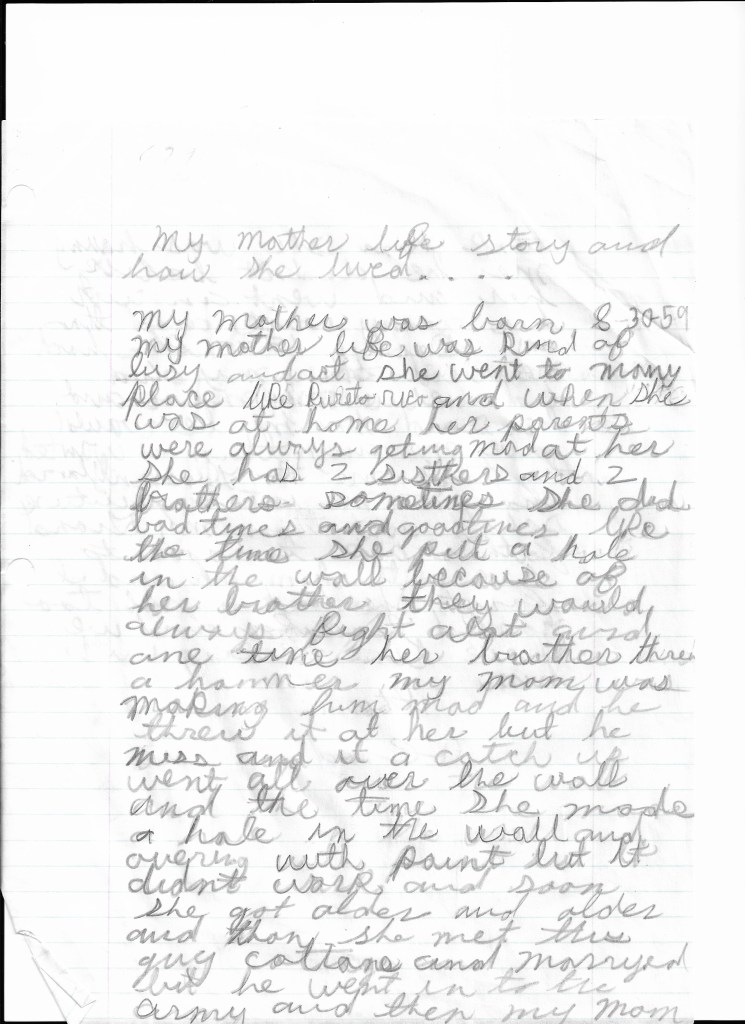 My mother life story and
how she lived. . . . .
My mother was born 8-30-59
My mother life was kind of
busy and out she went to many
place like Pureto rico and when she
was at home her parents
were always geting mad at her
She has 2 sisthers and 2
brothers sometimes she did
bad times and goodtimes like
the time she put a hole
in the wall because of
her brother they would
always fight alot and
one time her brother threw
a hammer my mom was
making him mad and he
threw it at her but he
miss and it a catch up
went all over the wall
and the time she made
a hole in the wall and
overing with paint but it
didnt work and soon
she got older and older
and than she met this
guy and marryed
but he went in to the
army and then my mom